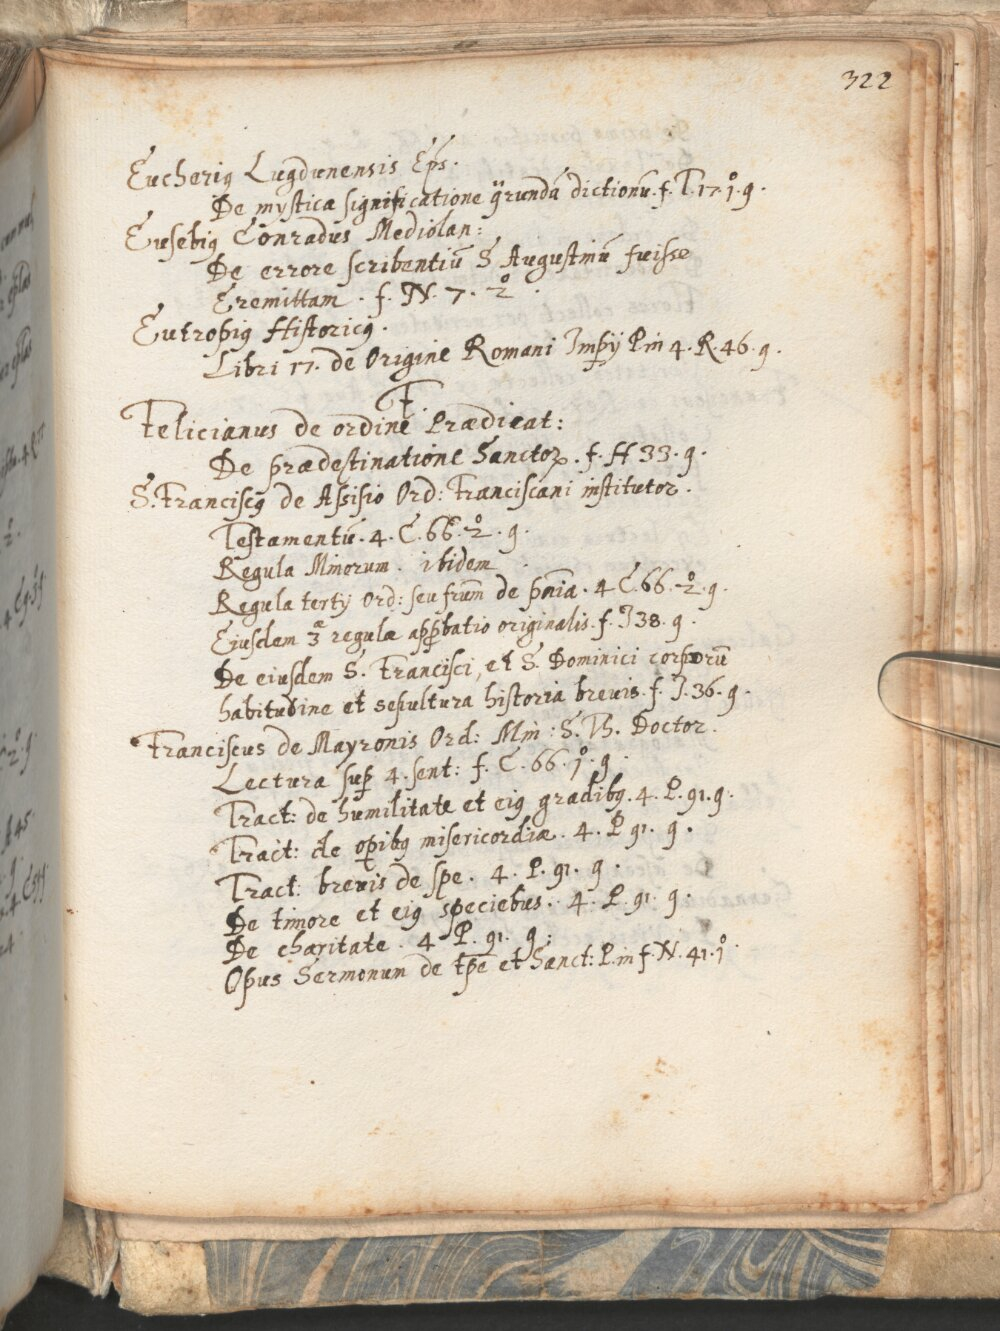 322
Eucheriꝰ Lugdunensis Ep̃s.
De mystica significatione q̃rundã dictionũ. f. T. 17. 1º. 9.
Eusebiꝰ Conradus Mediolan:
De errore scribentiũ S Augustinũ fuisse
Eremittam. f. N. 7. 2º.
Eutropiꝰ Historicꝰ.
Libri 17. de Origine Romani Imp̃ij P. in 4. R 46. 9.
F.
Felicianus de ordine Prædicat:
De prædestinatione Sanctoꝝ. f. H 33. 9.
S. Franciscꝰ de Assisio Ord: Franciscani institutor.
Testamentũ. 4. C. 66. 2º. 9.
Regula Minorum. ibidem
Regula tertij Ord: seu frum̃ de pñia. 4 C. 66. 2º. 9.
Ejusdem 3ª regulæ app̃batio originalis. f. J 38. 9.
De eiusdem S. Francisci, et S. Dominici corporũ
habitudine et sepultura historia brevis. f. J. 36. 9.
Franciscus de Mayronis Ord: Min: S. Th. Doctor.
Lectura sup̃ 4. sent: f. C. 66. 1º. 9.
Tract: de humilitate et eiꝰ gradibꝰ. 4. P. 91. 9.
Tract: de op̃ibꝰ misericordiæ. 4. P 91. 9.
Tract: brevis de spe. 4. P. 91. 9.
De timore et eiꝰ speciebus. 4. P. 91 9.
De charitate. 4 P. 91. 9.
Opus Sermonum de tp̃e et Sanct: P. in f. N. 41. 1º